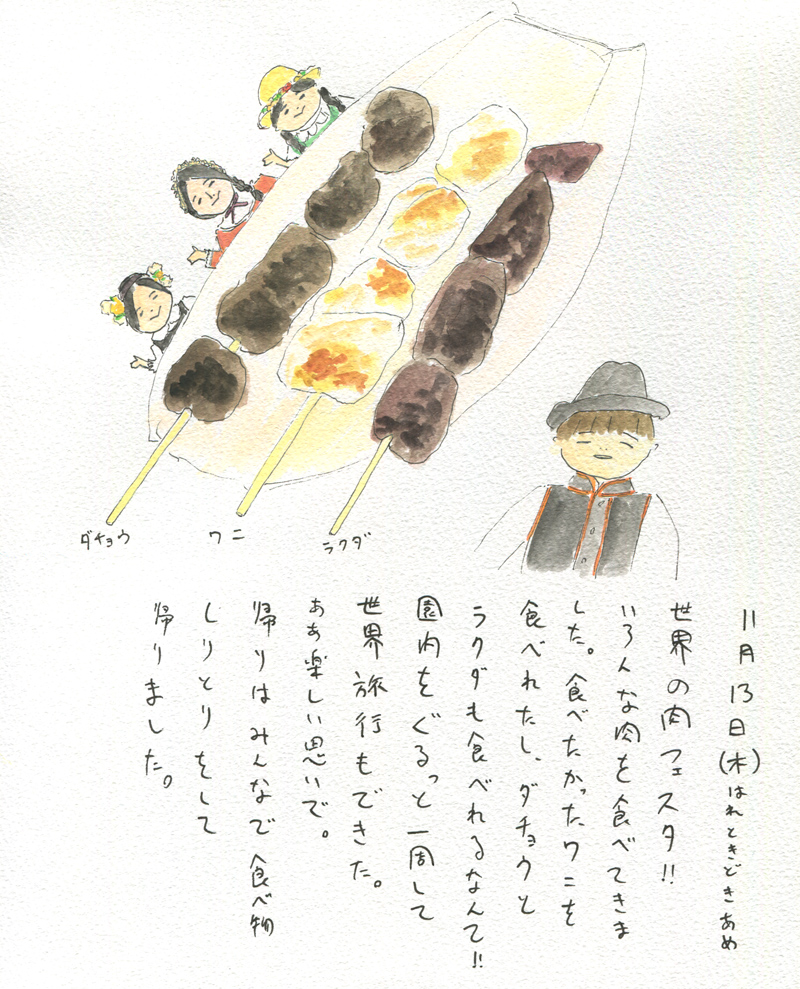 ダチョウ
ワニ
ラクダ
11月13日(木)はれときどきあめ
世界の肉フェスタ!!
いろんな肉を食べてきま
した。食べたかったワニを
食べれたし、ダチョウと
ラクダも食べれるなんて!!
園内をぐるっと一周して
世界旅行もできた。
ああ楽しい思いで。
帰りはみんなで食べ物
しりとりをして
帰りました。